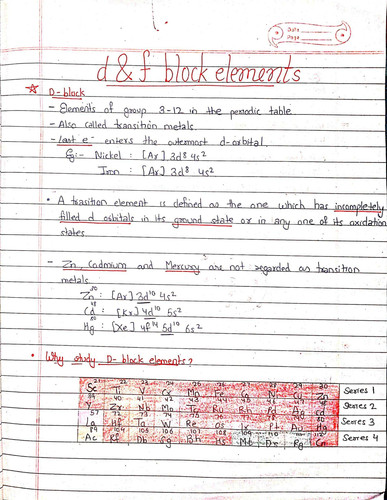 Date
Page
d & f block elements
D-block
- Elements of group 3-12 in the periodic table
- Also called transition metals.
- last e⁻ enters the outermost d-orbital.
Eg:- Nickel : [Ar] 3d⁸ 4s²
Iron : [Ar] 3d⁸ 4s²
• A trasition element is defined as the one which has incompletely
filled d orbitals in its ground state or in any one of its oxidation
states.
- Zn, Cadmium and Mercury are not regarded as transition
metals.
30 Zn : [Ar] 3d¹⁰ 4s²
48 Cd : [Kr] 4d¹⁰ 5s²
80 Hg : [Xe] 4f¹⁴ 5d¹⁰ 6s²
• Why study D-block elements?
21 22 23 24 25 26 27 28 29 30
Sc Ti V Cr Mn Fe Co Ni Cu Zn Series 1
39 40 41 42 43 44 45 46 47 48
Y Zr Nb Mo Tc Ru Rh Pd Ag Cd Series 2
57 72 73 74 75 76 77 78
La Hf Ta W Re Os Ir Pt Au Hg Series 3
89 104 105 106 107 108 109 110
Ac Rf Db Sg Bh Hs Mt Rg Cn Series 4